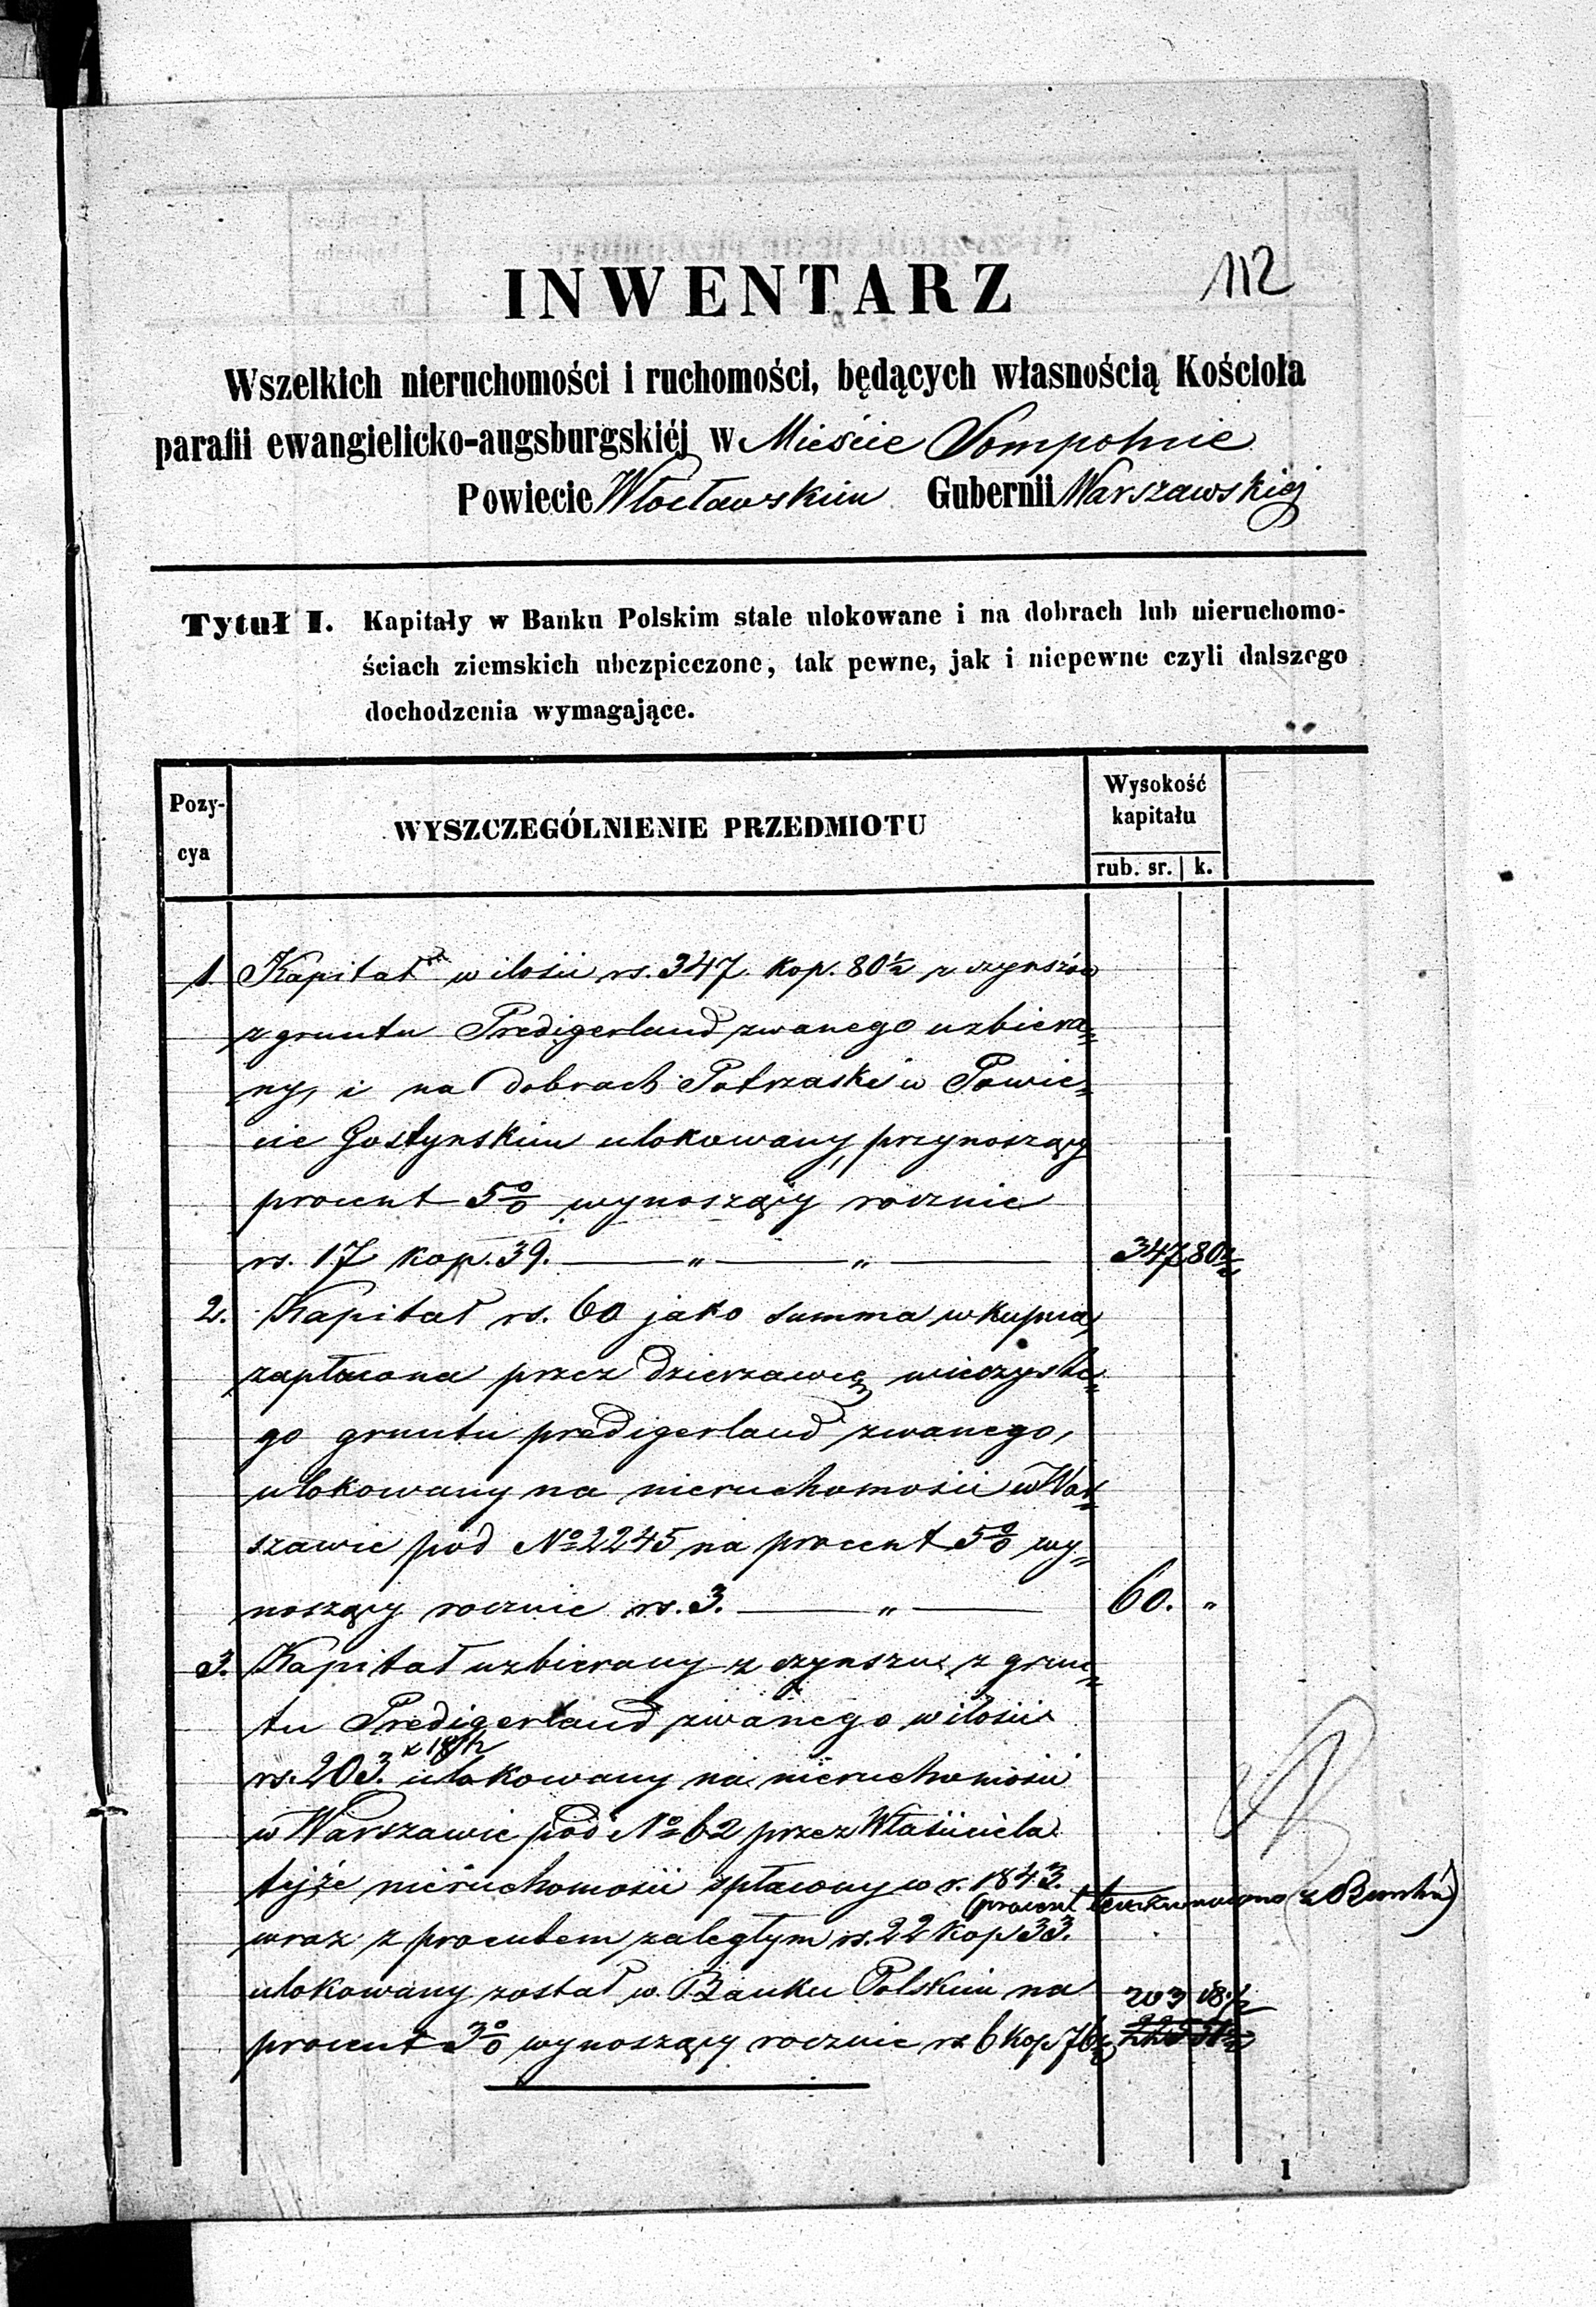 112
INWENTARZ
Wszelkich nieruchomości i ruchomości, będących własnością Kościoła
parafii ewangielicko-augsburgskiéj w Mieście Sompolnie
Powiecie Włocławskim Gubernii Warszawskiej
Tytuł I. Kapitały w Banku Polskim stale ulokowane i na dobrach lub nieruchomo-
ściach ziemskich ubezpieczone, tak pewne, jak i niepewne czyli dalszego
dochodzenia wymagające.
Pozy-cya
WYSZCZEGÓLNIENIE PRZEDMIOTU
Wysokość kapitału
rub. sr. k.
1. Kapitał w ilości rs. 347. kop. 80½ z czynszów
z gruntu Predigerland zwanego uzbiera=
ny, i na dobrach Potrzaski w Powie=
cie Gostynskim ulokowany, przynoszący
procent 5% wynoszący rocznie
rs. 17 kop. 39. — „ — „ — 347 80½
2. Kapitał rs. 60 jako summa wkupna,
zapłacona przez dzierzawcę wieczyste=
go gruntu predigerland zwanego,
ulokowany na nieruchomości w War=
szawie pod № 2245 na procent 5% wy=
noszący rocznie rs. 3. — „ — 60. „
3. Kapitał uzbierany z czynszu z grun=
tu Predigerland zwanego w ilości
rs. 203. k 18½ ulokowany na nieruchomości
w Warszawie pod № 62 przez Właściciela
tejże nieruchomości spłacony w r. 1843.
(procent z Banku)
wraz z procentem zaległym rs. 22 kop 33.
ulokowany został w Banku Polskim na 203 18½
procent 3% wynoszący rocznie rs 6 kop 76½ 225 51½
1